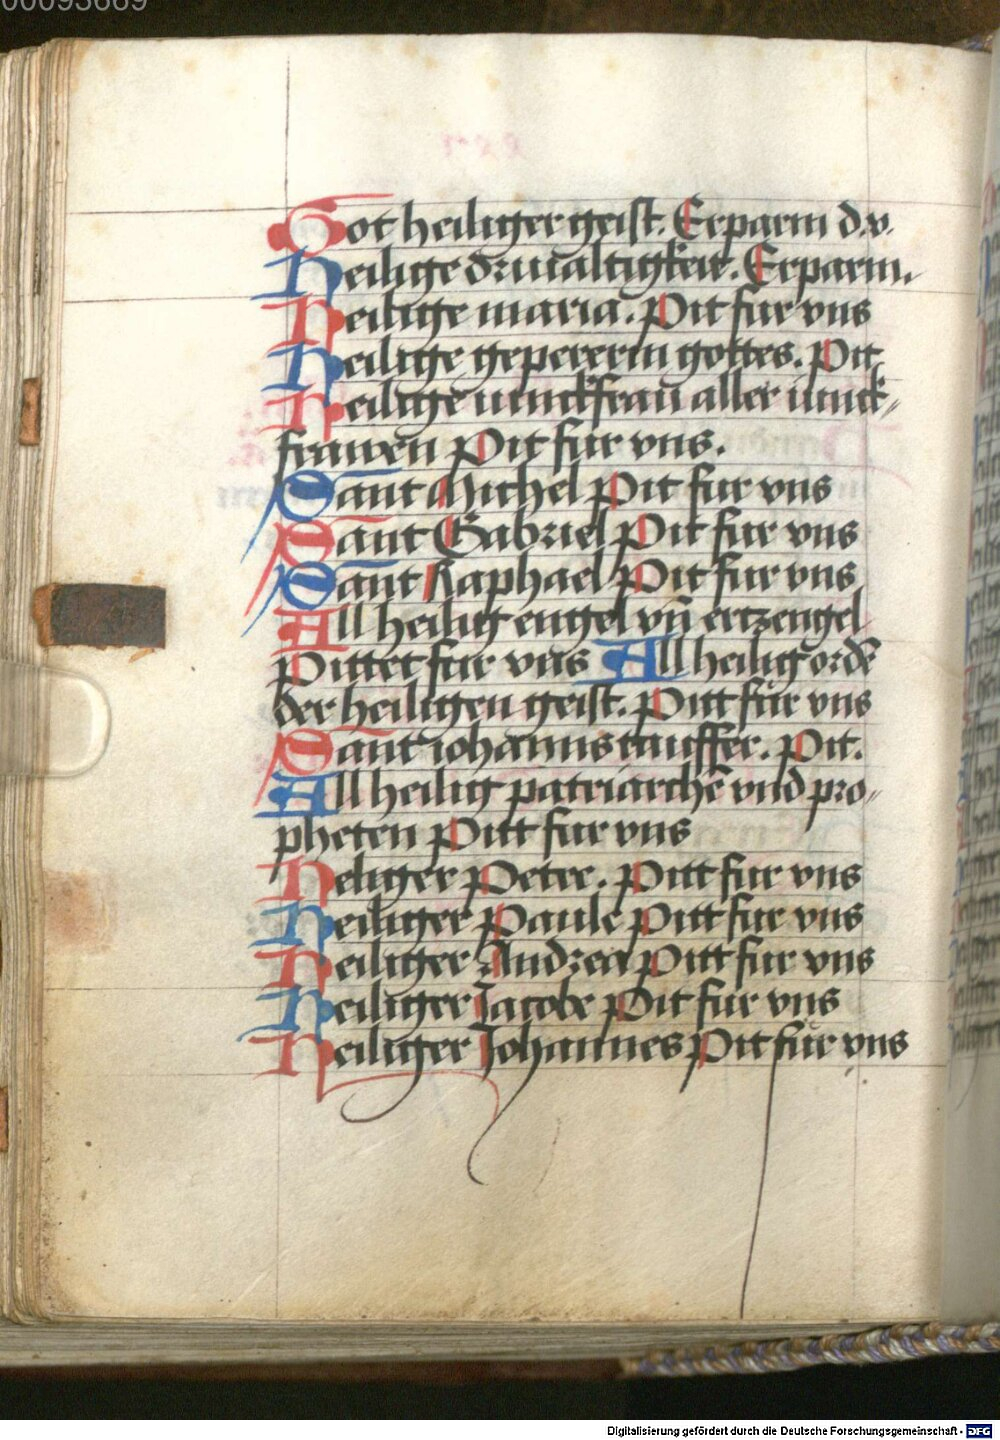 00093669
Got heiliger geist. Erparm d. v.
Heilige driualtigkeit. Erparm.
Heilige maria. Pit fur vns
Heilige gepererin gottes. Pit
Heilige iunckfraw aller iunck-
frawen Pit fur vns.
Sant Michel Pit fur vns
Sant Gabriel Pit fur vns
Sant Raphael Pit fur vns
All heilig engel vñ ertzengel
Pittet fur vns All heilig ordē
der heiligen geist. Pitt fur vns
Sant iohanns tauffer. Pit.
All heilig patriarchē vnd pro-
pheten Pitt fur vns
Heliger Peter. Pitt fur vns
Heiliger Paule Pitt fur vns
Heiliger Andrea Pitt fur vns
Heiliger Jacobe Pit fur vns
Heiliger Johannes Pit fur vns
Digitalisierung gefördert durch die Deutsche Forschungsgemeinschaft - DFG